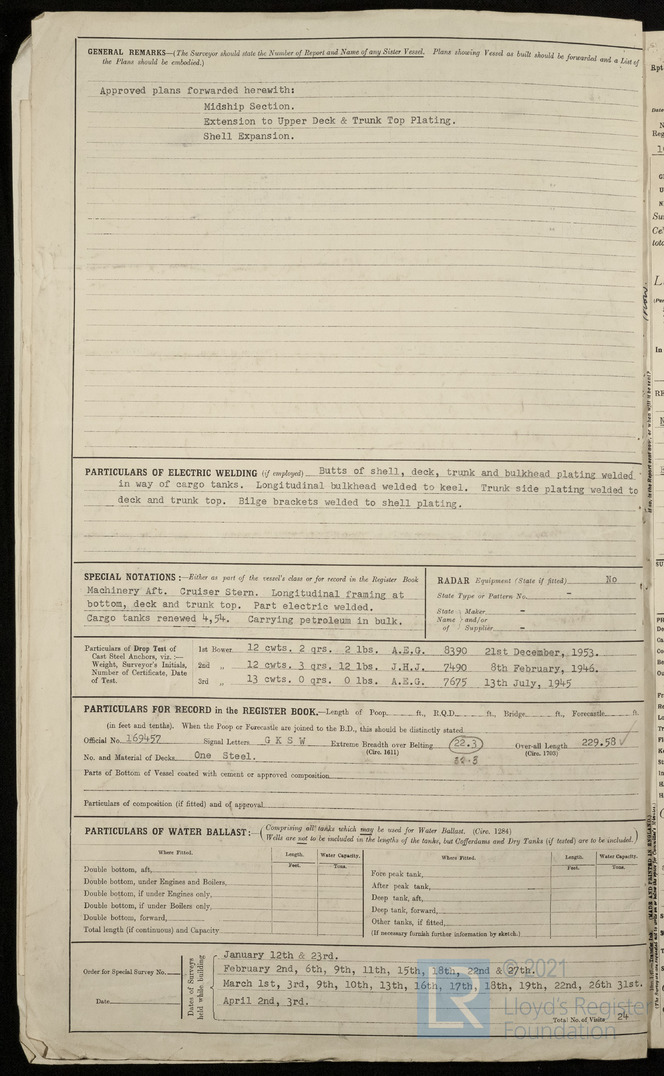 GENERAL REMARKS—(The Surveyor should state the Number of Report and Name of any Sister Vessel. Plans showing Vessel as built should be forwarded and a List of
the Plans should be embodied.)
Approved plans forwarded herewith:
Midship Section.
Extension to Upper Deck & Trunk Top Plating.
Shell Expansion.
PARTICULARS OF ELECTRIC WELDING (if employed) Butts of shell, deck, trunk and bulkhead plating welded
in way of cargo tanks. Longitudinal bulkhead welded to keel. Trunk side plating welded to
deck and trunk top. Bilge brackets welded to shell plating.
SPECIAL NOTATIONS:—Either as part of the vessel's class or for record in the Register Book
Machinery Aft. Cruiser Stern. Longitudinal framing at
bottom, deck and trunk top. Part electric welded.
Cargo tanks renewed 4,54. Carrying petroleum in bulk.
RADAR Equipment (State if fitted) No
State Type or Pattern No. -
State Maker -
Name and/or
of Supplier -
Particulars of Drop Test of
Cast Steel Anchors, viz.:—
Weight, Surveyor's Initials,
Number of Certificate, Date
of Test.
1st Bower 12 cwts. 2 qrs. 2 lbs. A.E.G. 8390 21st December, 1953.
2nd „ 12 cwts. 3 qrs. 12 lbs. J.H.J. 7490 8th February, 1946.
3rd „ 13 cwts. 0 qrs. 0 lbs. A.E.G. 7675 13th July, 1945
PARTICULARS FOR RECORD in the REGISTER BOOK.—Length of Poop ft., R.Q.D. ft., Bridge ft., Forecastle ft.
(in feet and tenths). When the Poop or Forecastle are joined to the B.D., this should be distinctly stated
Official No. 169457 Signal Letters G K S W Extreme Breadth over Belting 22.3 Over-all Length 229.58
(Circ. 1611) (Circ. 1703)
No. and Material of Decks One Steel.
Parts of Bottom of Vessel coated with cement or approved composition
Particulars of composition (if fitted) and of approval
PARTICULARS OF WATER BALLAST:— (Comprising all tanks which may be used for Water Ballast. (Circ. 1284)
Wells are not to be included in the lengths of the tanks, but Cofferdams and Dry Tanks (if tested) are to be included.)
Where Fitted. Length. Water Capacity. Where Fitted. Length. Water Capacity.
Feet. Tons. Feet. Tons.
Double bottom, aft,
Double bottom, under Engines and Boilers,
Double bottom, if under Engines only,
Double bottom, if under Boilers only,
Double bottom, forward,
Total length (if continuous) and Capacity
Fore peak tank,
After peak tank,
Deep tank, aft,
Deep tank, forward,
Other tanks, if fitted,
(If necessary furnish further information by sketch.)
Order for Special Survey No.
Date
Dates of Surveys
held while building
January 12th & 23rd.
February 2nd, 6th, 9th, 11th, 15th, 18th, 22nd & 27th.
March 1st, 3rd, 9th, 10th, 13th, 16th, 17th, 18th, 19th, 22nd, 26th 31st.
April 2nd, 3rd.
Total No. of Visits 24
LR
© 2021
Lloyd's Register
Foundation